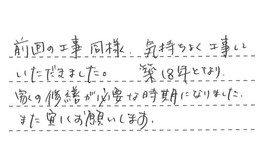 前回の工事同様、気持ちよく工事して
いただきました。　築18年となり、
家の修繕が必要な時期になりました。
また宜しくお願いします。